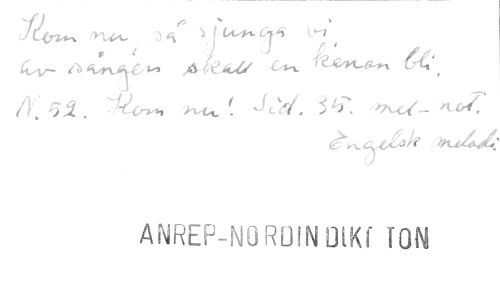 Kom nu, så sjunga vi
av sången skall en kanon bli.
N. 52. Kom nu! Sid. 35. mel-not.
Engelsk melodi.
ANREP-NORDIN DIKT TON